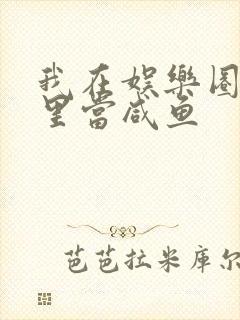 我在娱樂圈
里當咸鱼
芭芭拉米库尔